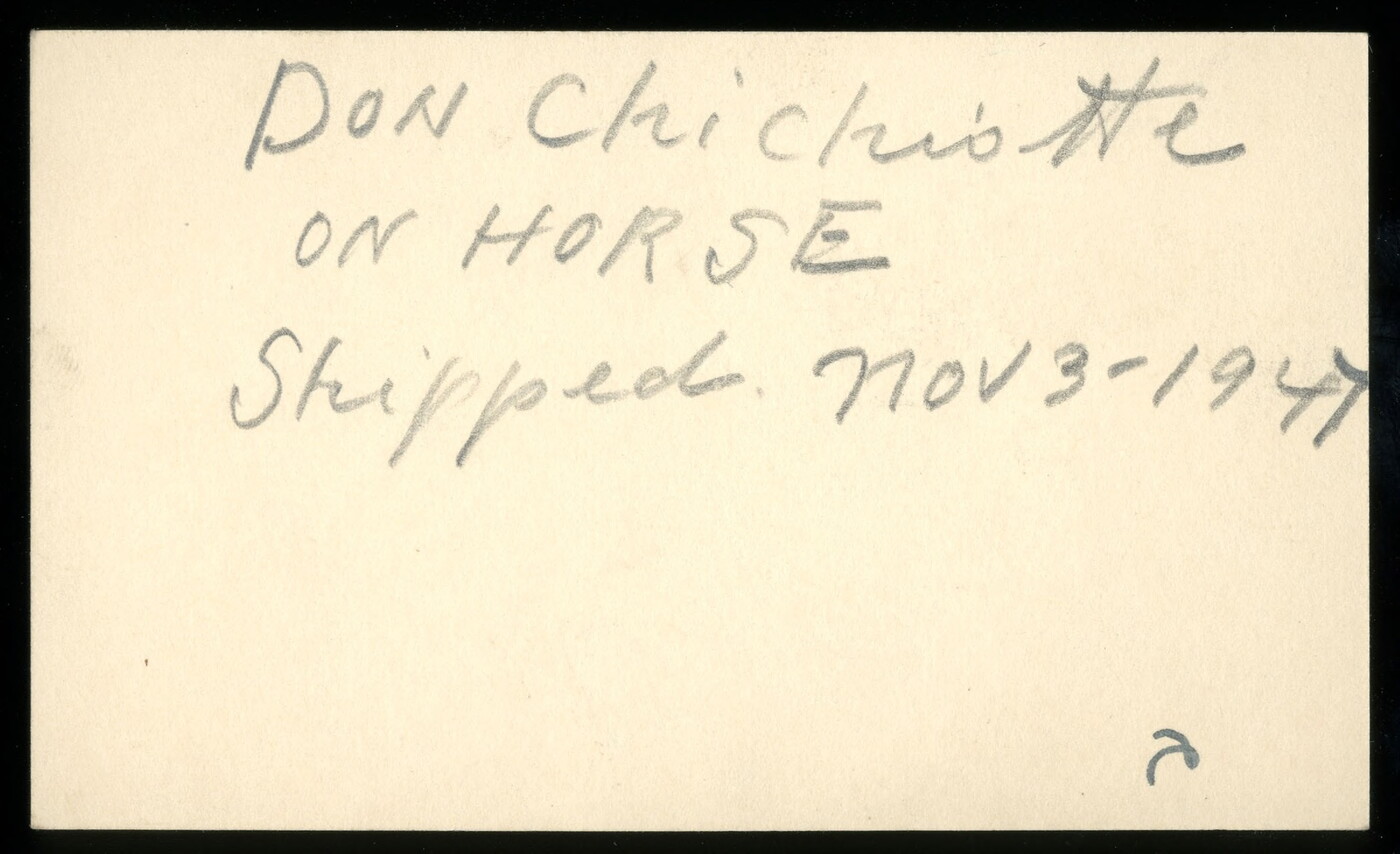 DON Chichiotte
ON HORSE
Shipped. Nov 3-1947